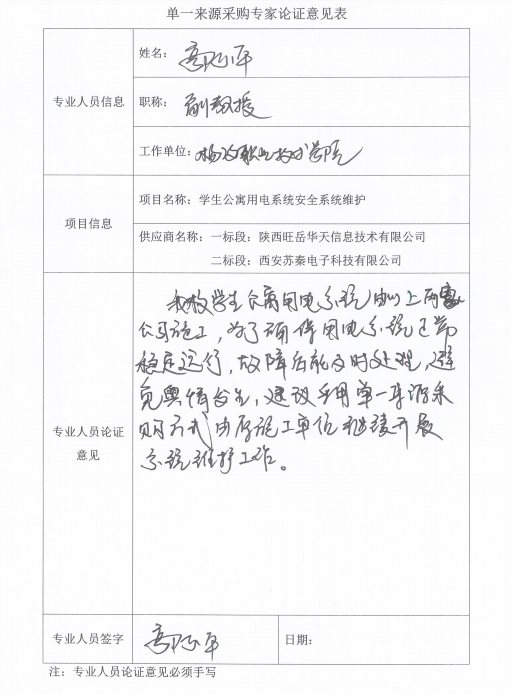 单一来源采购专家论证意见表
专业人员信息
姓名：
职称： 副教授
工作单位：杨凌职业技术学院
项目信息
项目名称：学生公寓用电系统安全系统维护
供应商名称：一标段：陕西旺岳华天信息技术有限公司
二标段：西安苏秦电子科技有限公司
专业人员论证
意见
我校学生公寓用电系统由以上两家
公司施工，为了确保用电系统正常
稳定运行，故障后能及时处理，避
免舆情发生，建议采用单一来源采
购方式由原施工单位继续开展
系统维护工作。
专业人员签字
日期：
注：专业人员论证意见必须手写